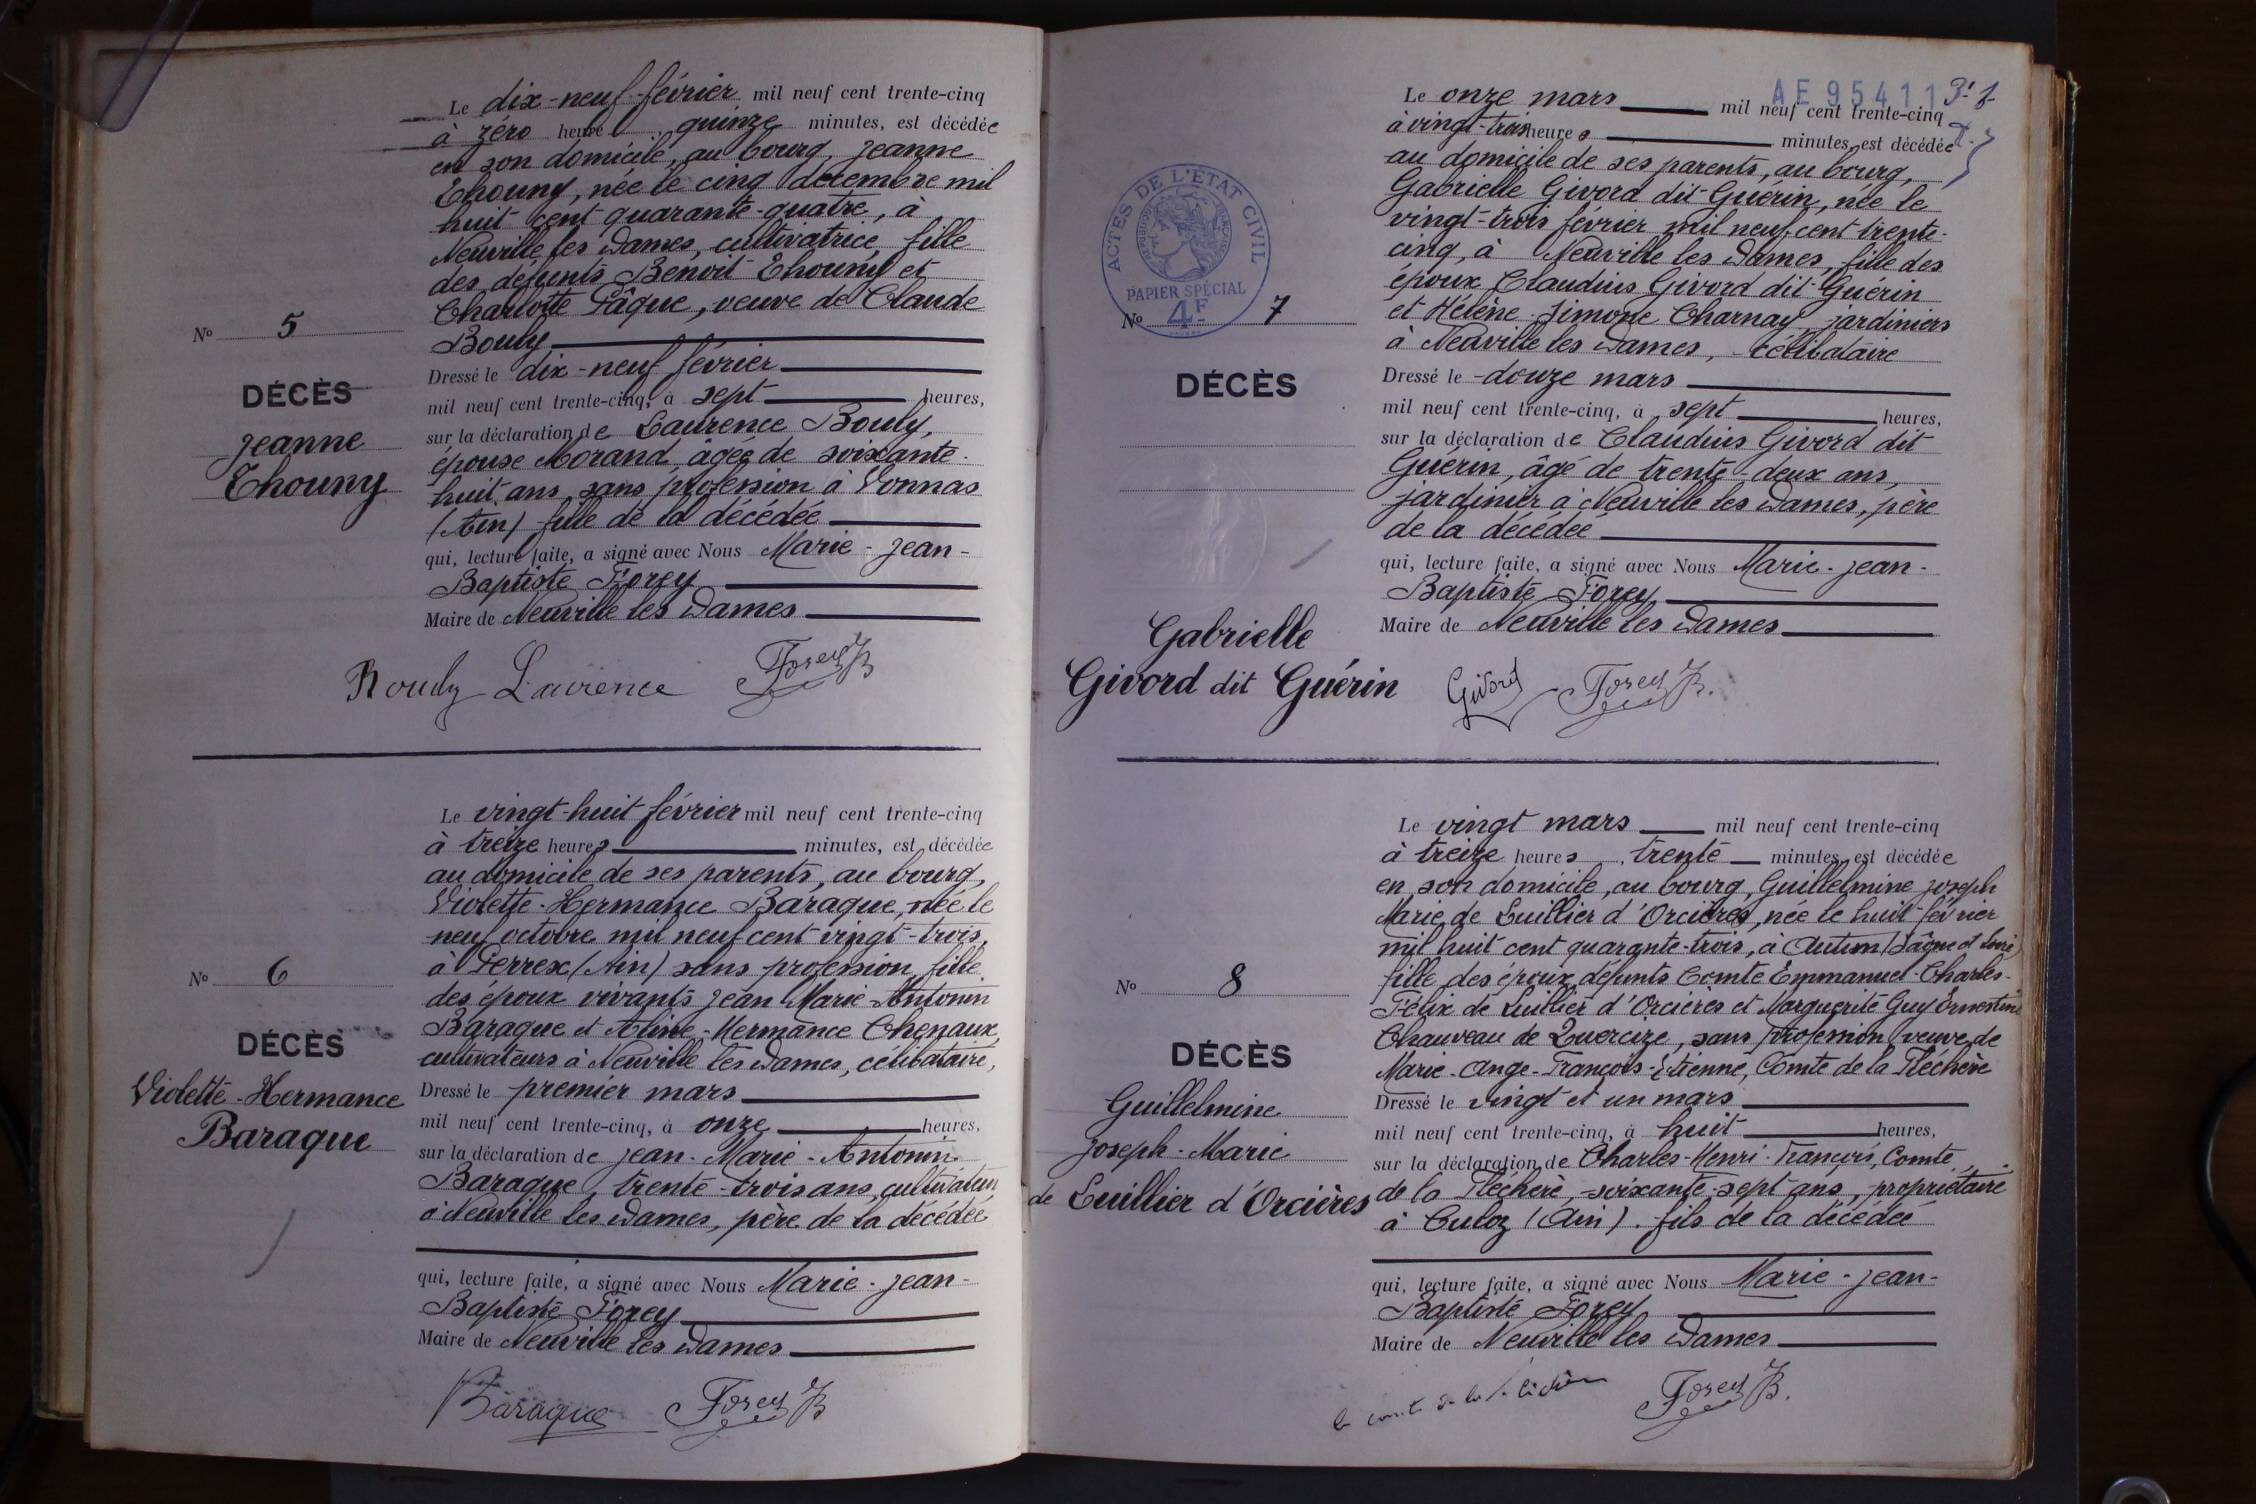 Le dix-neuf février mil neuf cent trente-cinq
à zéro heure quinze minutes, est décédée
en son domicile, au bourg, Jeanne
Thouny, née le cinq décembre mil
huit cent quarante-quatre, à
Neuville les Dames, cultivatrice, fille
des défunts Benoit Thouny et
Charlotte Pâque, veuve de Claude
Bouly
Nº 5
DÉCÈS
Jeanne
Thouny
Dressé le dix-neuf février
mil neuf cent trente-cinq, à sept heures,
sur la déclaration de Laurence Bouly,
épouse Morand, âgée de soixante-
huit ans, sans profession à Vonnas
(Ain) fille de la décédée
qui, lecture faite, a signé avec Nous Marie-Jean-
Baptiste Forey
Maire de Neuville les Dames
Bouly Laurence Forey JB
Le vingt-huit février mil neuf cent trente-cinq
à treize heures minutes, est décédée
au domicile de ses parents, au bourg,
Violette-Hermance Baraque, née le
neuf octobre mil neuf cent vingt-trois,
à Perrex (Ain) sans profession, fille
des époux vivants Jean Marie-Antonin
Baraque et Aline-Hermance Chenaux,
cultivateurs à Neuville les Dames, célibataire,
Nº 6
DÉCÈS
Violette-Hermance
Baraque
Dressé le premier mars
mil neuf cent trente-cinq, à onze heures,
sur la déclaration de Jean-Marie-Antonin
Baraque, trente-trois ans, cultivateur
à Neuville les Dames, père de la décédée
qui, lecture faite, a signé avec Nous Marie-Jean-
Baptiste Forey
Maire de Neuville les Dames
Baraque Forey JB
AE 95411
ACTES DE L'ÉTAT CIVIL
PAPIER SPÉCIAL
4F
Le onze mars mil neuf cent trente-cinq
à vingt-trois heures minutes, est décédée
au domicile de ses parents, au bourg,
Gabrielle Givord dit Guérin, née le
vingt-trois février mil neuf cent trente-
cinq, à Neuville les Dames, fille des
époux Claudius Givord dit Guérin
et Hélène-Simone Charnay jardiniers
à Neuville les Dames, célibataire
Nº 7
DÉCÈS
Gabrielle
Givord dit Guérin
Dressé le douze mars
mil neuf cent trente-cinq, à sept heures,
sur la déclaration de Claudius Givord dit
Guérin, âgé de trente-deux ans,
jardinier à Neuville les Dames, père
de la décédée
qui, lecture faite, a signé avec Nous Marie-Jean-
Baptiste Forey
Maire de Neuville les Dames
Givord Forey JB.
Le vingt mars mil neuf cent trente-cinq
à treize heures, trente minutes, est décédée
en son domicile, au bourg, Guillelmine Joseph
Marie de Luillier d'Orcières, née le huit février
mil huit cent quarante-trois, à Autun (Saône et Loire)
fille des époux défunts Comte Emmanuel-Charles-
Félix de Luillier d'Orcières et Marguerite Guy Ernestine
Chauveau de Quercize, sans profession, veuve de
Marie-Ange-François-Etienne, Comte de la Fléchère
Nº 8
DÉCÈS
Guillelmine
Joseph-Marie
de Luillier d'Orcières
Dressé le vingt et un mars
mil neuf cent trente-cinq, à huit heures,
sur la déclaration de Charles-Henri-François, Comte
de la Fléchère, soixante-sept ans, propriétaire
à Culoz (Ain). fils de la décédée
qui, lecture faite, a signé avec Nous Marie-Jean-
Baptiste Forey
Maire de Neuville les Dames
le comte de la Fléchère Forey JB.